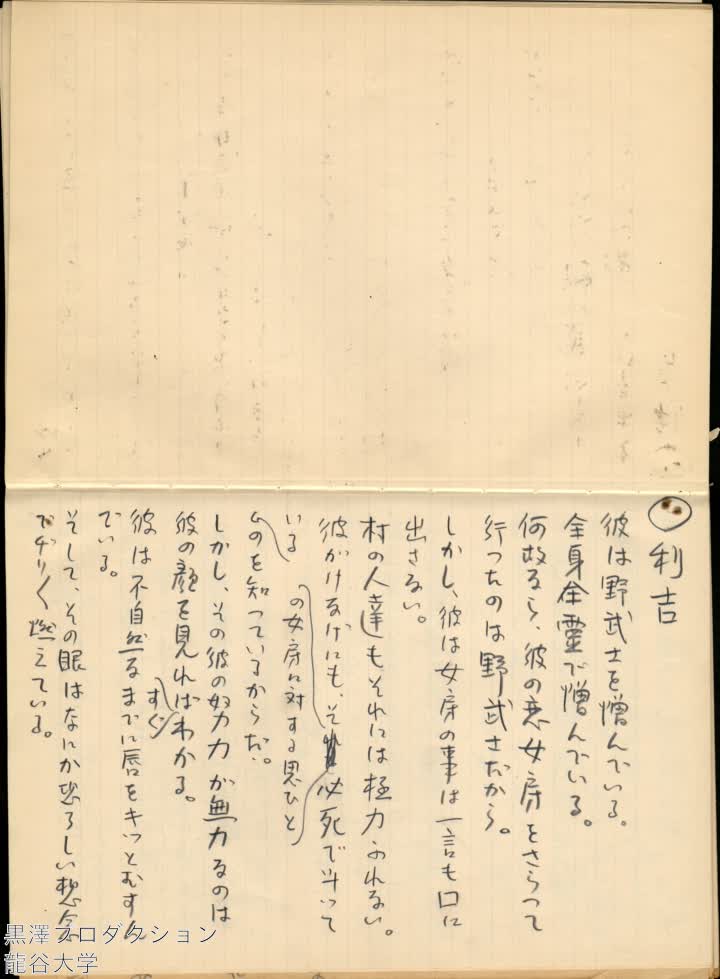 利吉
彼は野武士を憎んでいる。
全身全霊で憎んでいる。
何故なら、彼の恋女房をさらって
行ったのは野武士だから。
しかし、彼は女房の事は一言も口に
出さない。
村の人達もそれには極力ふれない。
彼がけなげにも、その女房に対する思ひと必死で斗って
いる
のを知っているからだ。
しかし、その彼の努力が無力なのは
彼の顔を見ればすぐわかる。
彼は不自然なまでに唇をキッとむすん
でいる。
そして、その眼はなにか恐ろしい想念
でヂリ〱燃えている。
黒澤プロダクション
龍谷大学